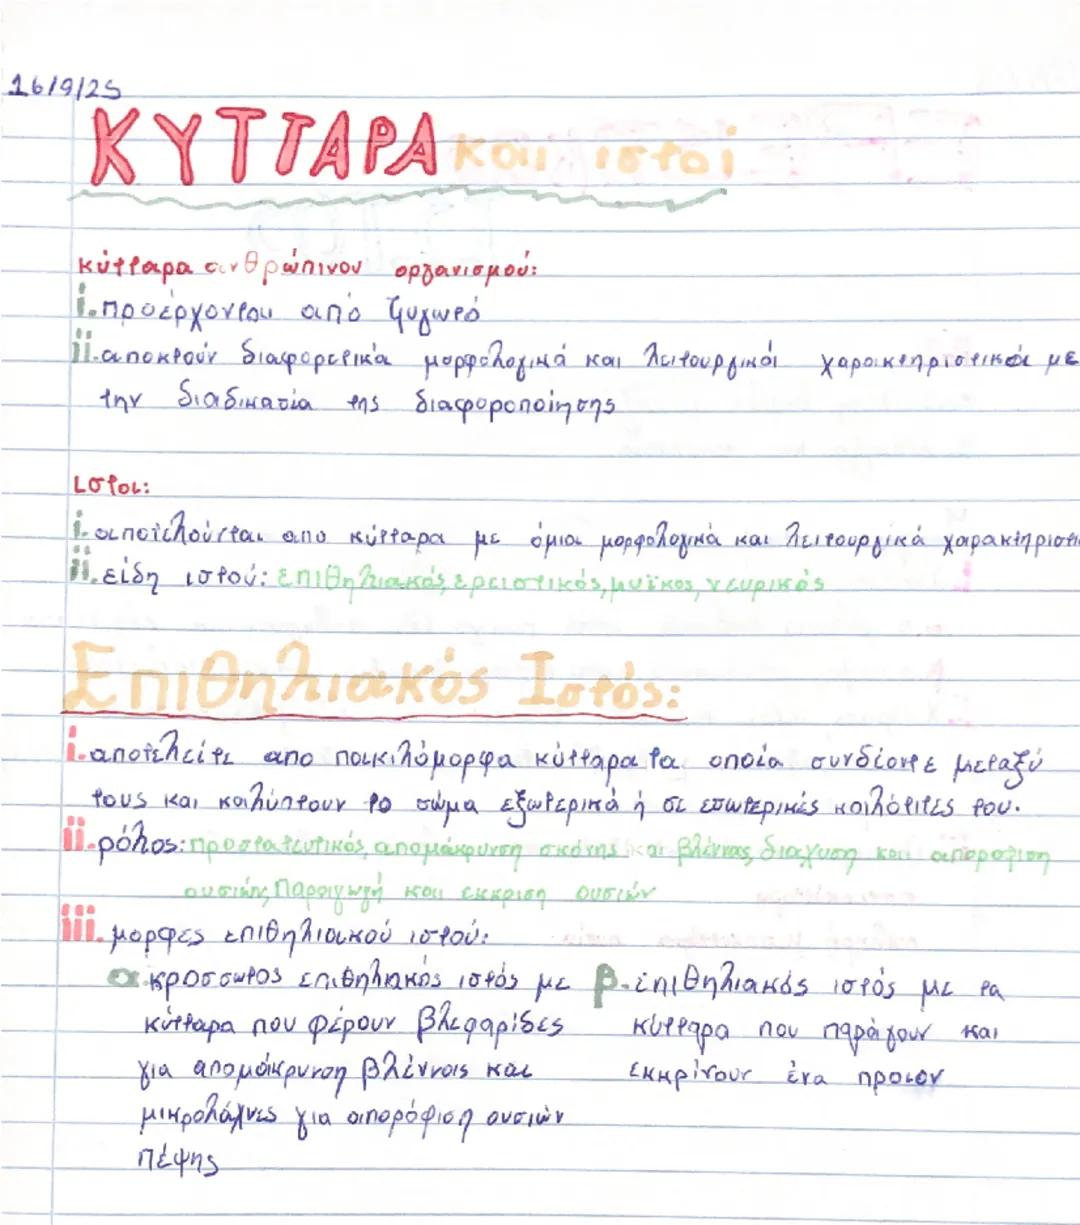 16/9/25
ΚΥΤΤΑΡΑ και ιστοί
κύτταρα ανθρώπινου οργανισμού:
i. προέρχονται από ζυγωτό
ii. αποκτούν διαφορετικά μορφολογικά και λειτουργικά χαρακτηριστικά με
την διαδικασία της διαφοροποίησης
Ιστοι:
i. αποτελούνται απο κύτταρα με όμια μορφολογικά και λειτουργικά χαρακτηριστι
ii. είδη ιστού: επιθηλιακός, ερειστικός, μυϊκος, νευρικός
Επιθηλιακός Ιστός:
i. αποτελείτε απο ποικιλόμορφα κύτταρα τα οποία συνδέοντε μεταξύ
τους και καλύπτουν το σώμα εξωτερικά ή σε εσωτερικές κοιλότιτες του.
ii. ρόλος: προστατευτικός, απομάκρυνση σκόνης και βλέννας, διαχυση και απορρόφιση
ουσιών, Παραγωγή και εκκριση ουσιών
iii. μορφες επιθηλιακού ιστού:
α. κροσσωτος επιθηλιακός ιστός με
κύτταρα που φέρουν βλεφαρίδες
για απομάκρυνση βλέννας και
μικρολάχνες για απορόφιση ουσιών
πέψης
β. επιθηλιακός ιστός με τα
κύτταρα που παράγουν και
εκκρίνουν ένα προιον